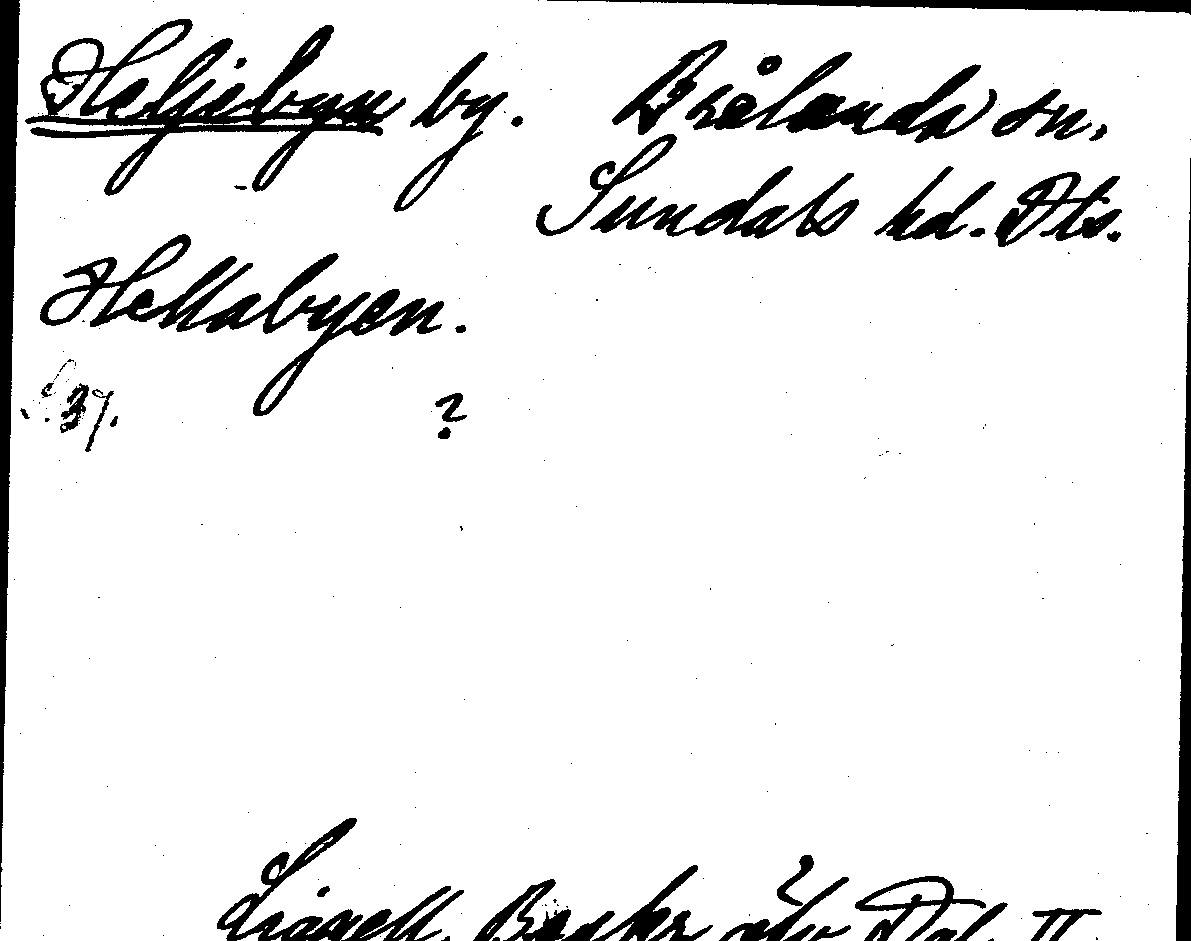 Heljebyn by. Brålanda sn,
Sundals hd. Dls.
Hellabyen.
S. 37. ?
Lignell, Beskr. öfv. Dal. II.